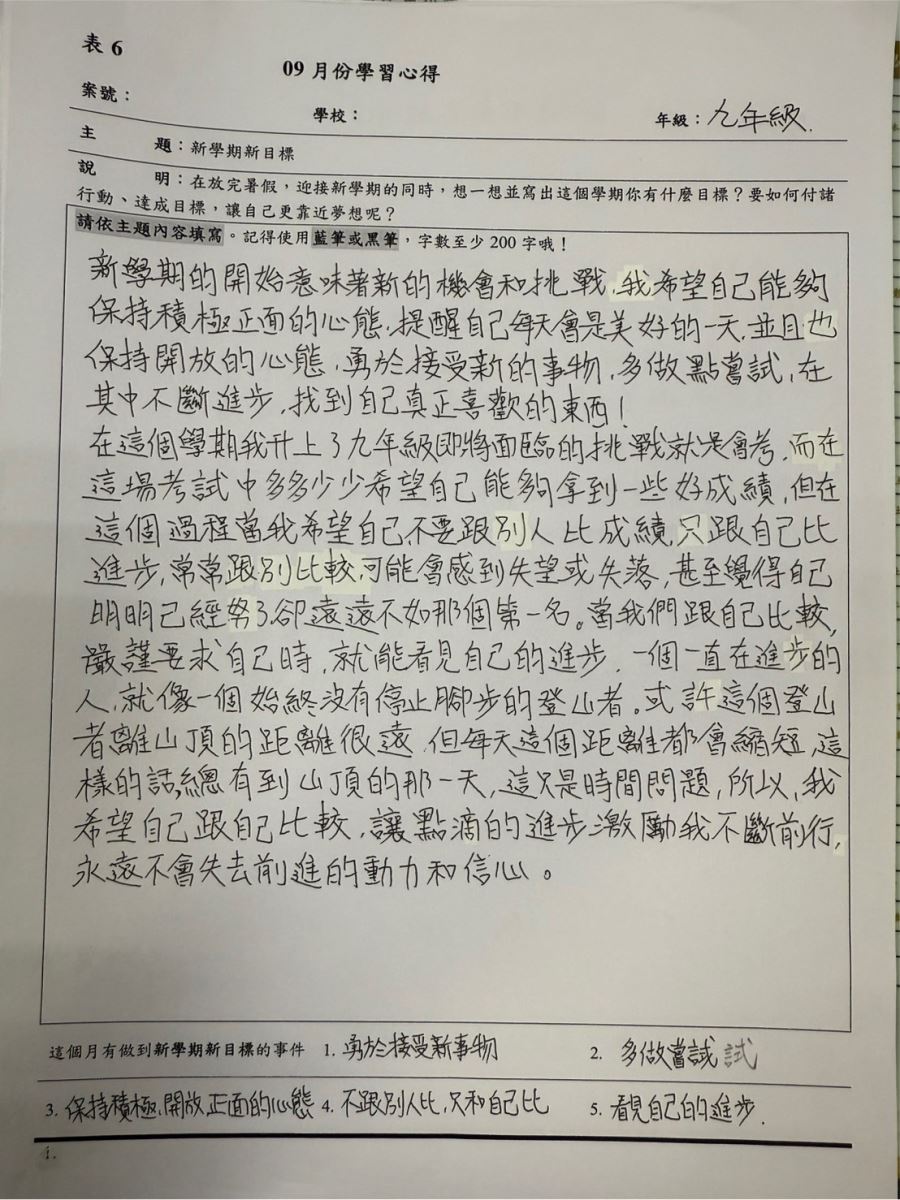 表 6
09 月份學習心得
案號：
學校：
年級：九年級.
主 題：新學期新目標
說 明：在放完暑假，迎接新學期的同時，想一想並寫出這個學期你有什麼目標？要如何付諸
行動、達成目標，讓自己更靠近夢想呢？
請依主題內容填寫。記得使用藍筆或黑筆，字數至少 200 字哦！
新學期的開始意味著新的機會和挑戰，我希望自己能夠
保持積極正面的心態，提醒自己每天會是美好的一天，並且也
保持開放的心態，勇於接受新的事物，多做點嘗試，在
其中不斷進步，找到自己真正喜歡的東西！
在這個學期我升上了九年級即將面臨的挑戰就是會考，而在
這場考試中多多少少希望自己能夠拿到一些好成績，但在
這個過程當我希望自己不要跟別人比成績，只跟自己比
進步，常常跟別比較，可能會感到失望或失落，甚至覺得自己
明明已經努了卻遠遠不如那個第一名。當我們跟自己比較，
嚴謹要求自己時，就能看見自己的進步，一個一直在進步的
人，就像一個始終沒有停止腳步的登山者。或許這個登山
者離山頂的距離很遠，但每天這個距離都會縮短，這
樣的話，總有到山頂的那一天，這只是時間問題，所以，我
希望自己跟自己比較，讓點滴的進步激勵我不斷前行，
永遠不會失去前進的動力和信心。
這個月有做到新學期新目標的事件 1. 勇於接受新事物 2. 多做嘗試 試
3. 保持積極、開放、正面的心態 4. 不跟別人比，只和自己比 5. 看見自己的進步.
1.